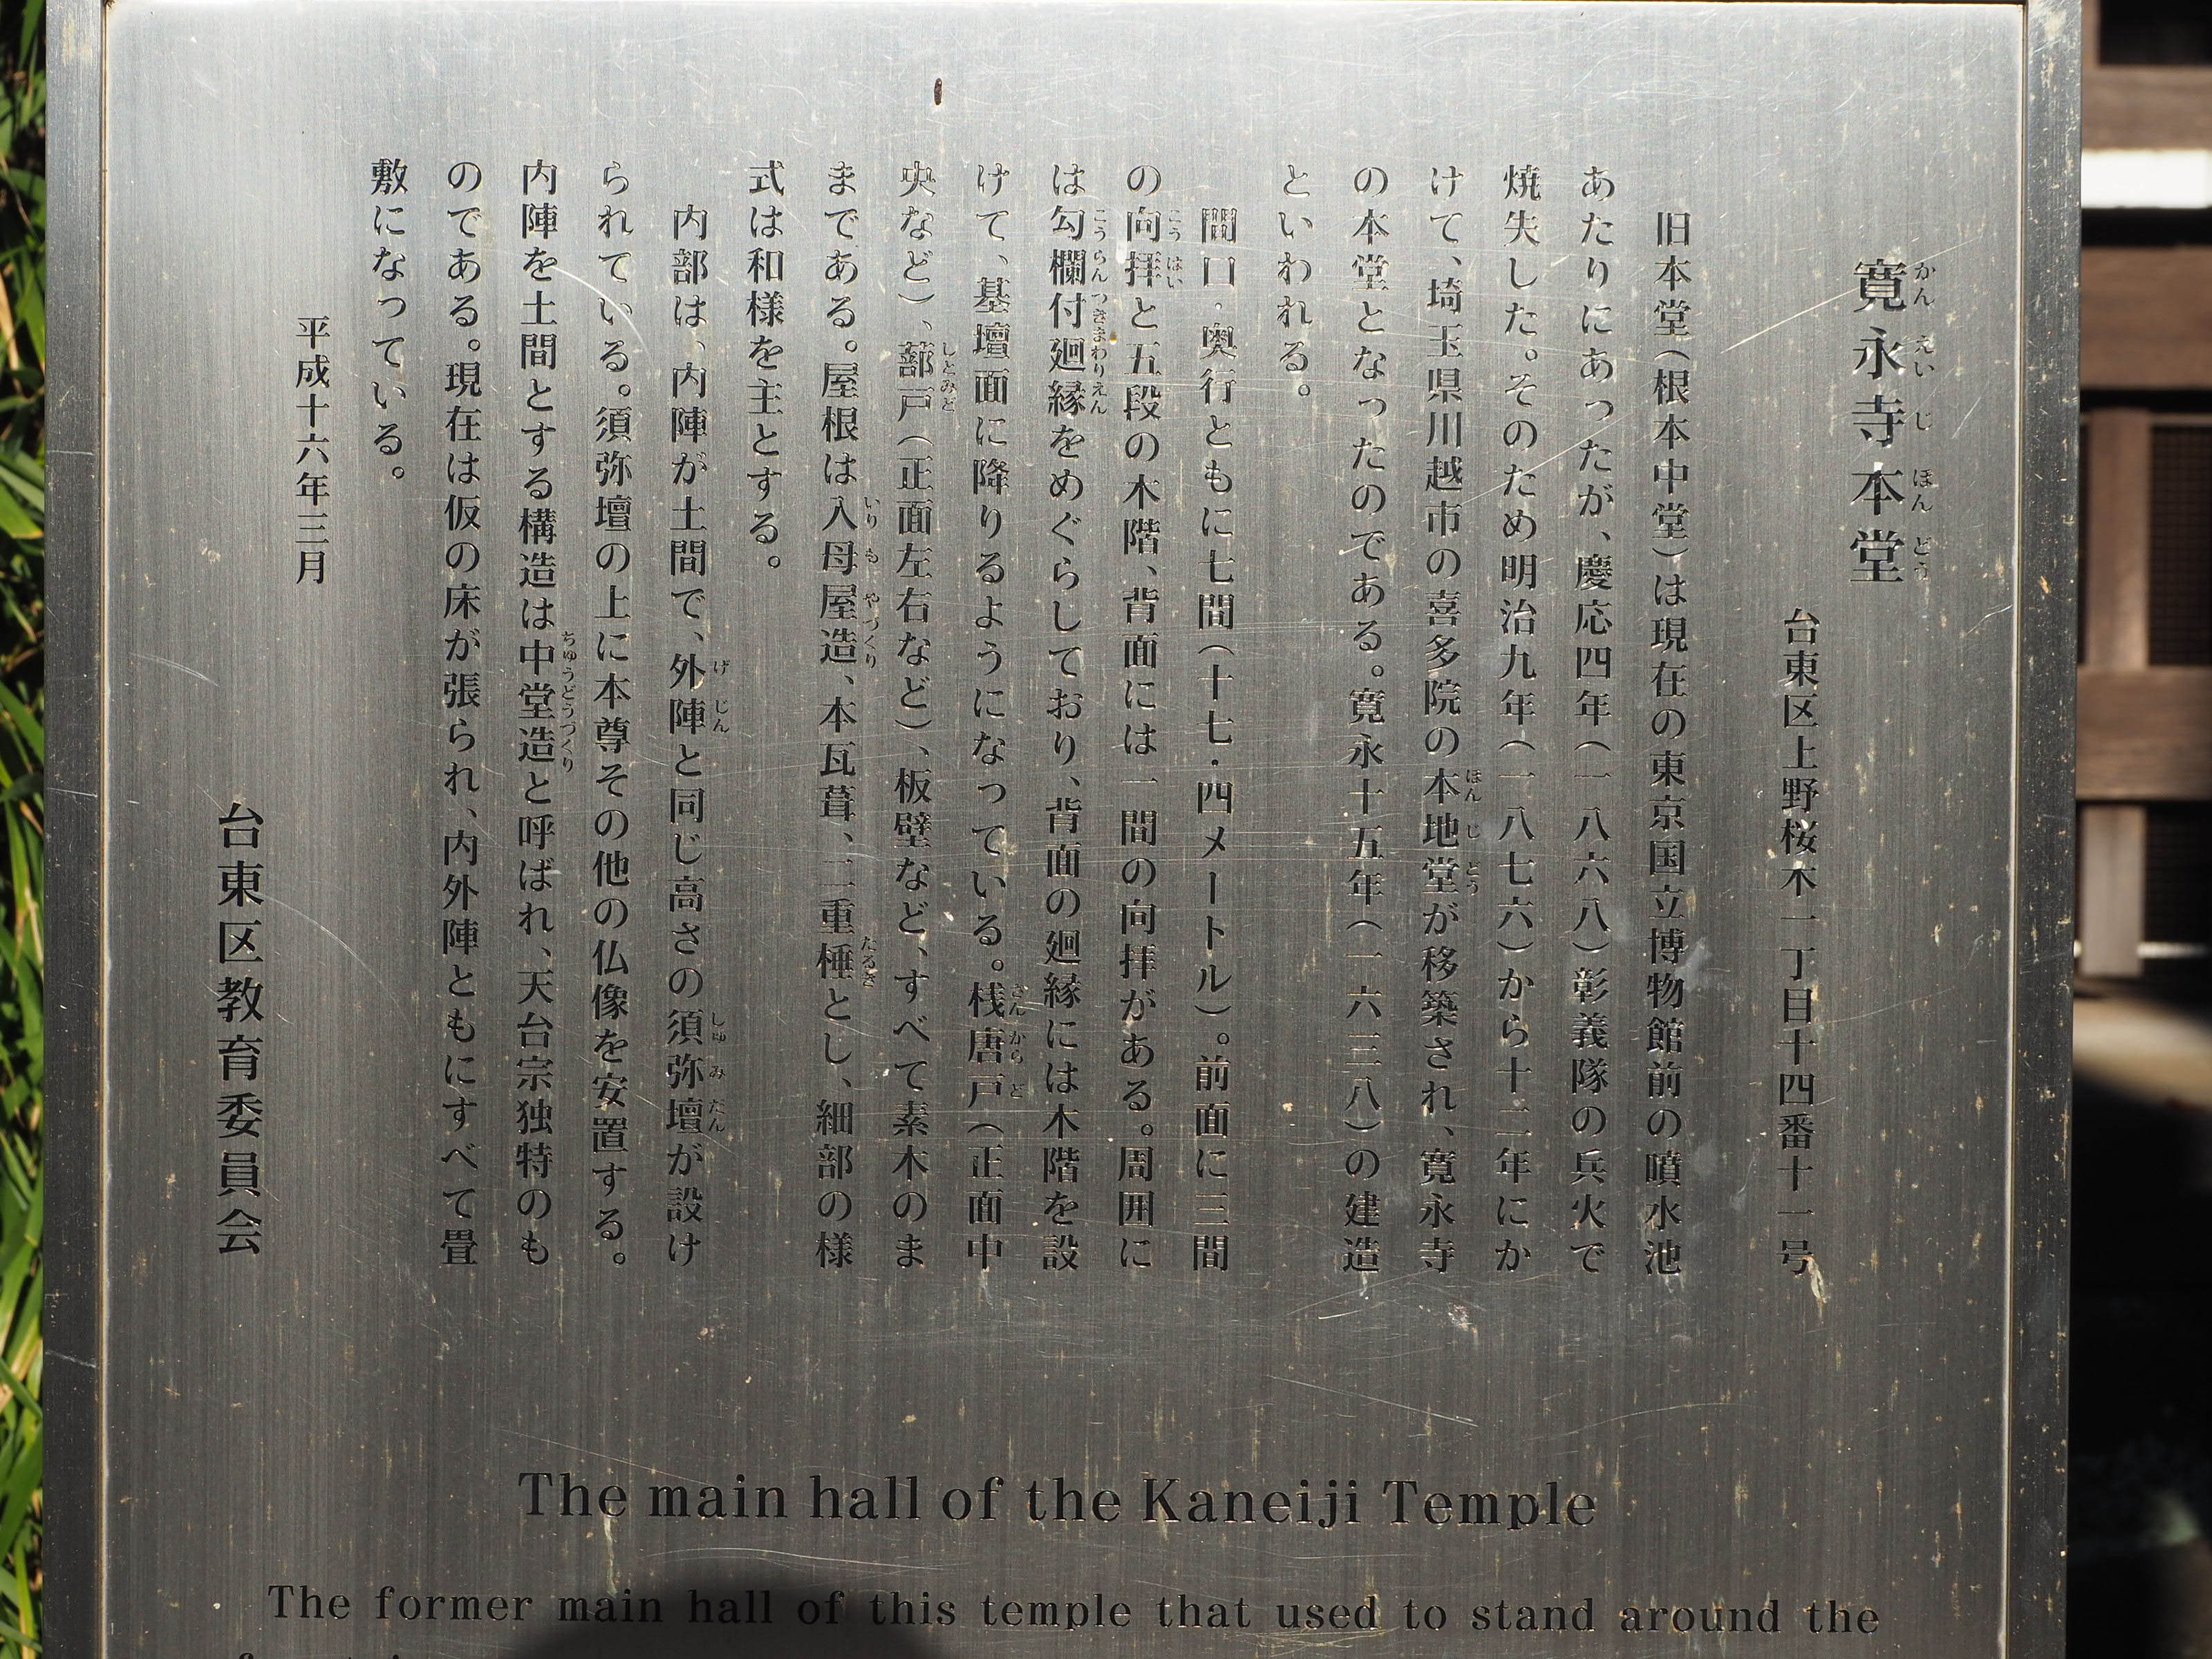 寛永寺本堂
台東区上野桜木一丁目十四番十一号
旧本堂（根本中堂）は現在の東京国立博物館前の噴水池
あたりにあったが、慶応四年（一八六八）彰義隊の兵火で
焼失した。そのため明治九年（一八七六）から十二年にか
けて、埼玉県川越市の喜多院の本地堂が移築され、寛永寺
の本堂となったのである。寛永十五年（一六三八）の建造
といわれる。
間口・奥行ともに七間（十七・四メートル）。前面に三間
の向拝と五段の木階、背面には一間の向拝がある。周囲に
は勾欄付廻縁をめぐらしており、背面の廻縁には木階を設
けて、基壇面に降りるようになっている。桟唐戸（正面中
央など）、蔀戸（正面左右など）、板壁など、すべて素木のま
まである。屋根は入母屋造、本瓦葺、二重棰とし、細部の様
式は和様を主とする。
内部は、内陣が土間で、外陣と同じ高さの須弥壇が設け
られている。須弥壇の上に本尊その他の仏像を安置する。
内陣を土間とする構造は中堂造と呼ばれ、天台宗独特のも
のである。現在は仮の床が張られ、内外陣ともにすべて畳
敷になっている。
平成十六年三月
台東区教育委員会
The main hall of the Kaneiji Temple
The former main hall of this temple that used to stand around the